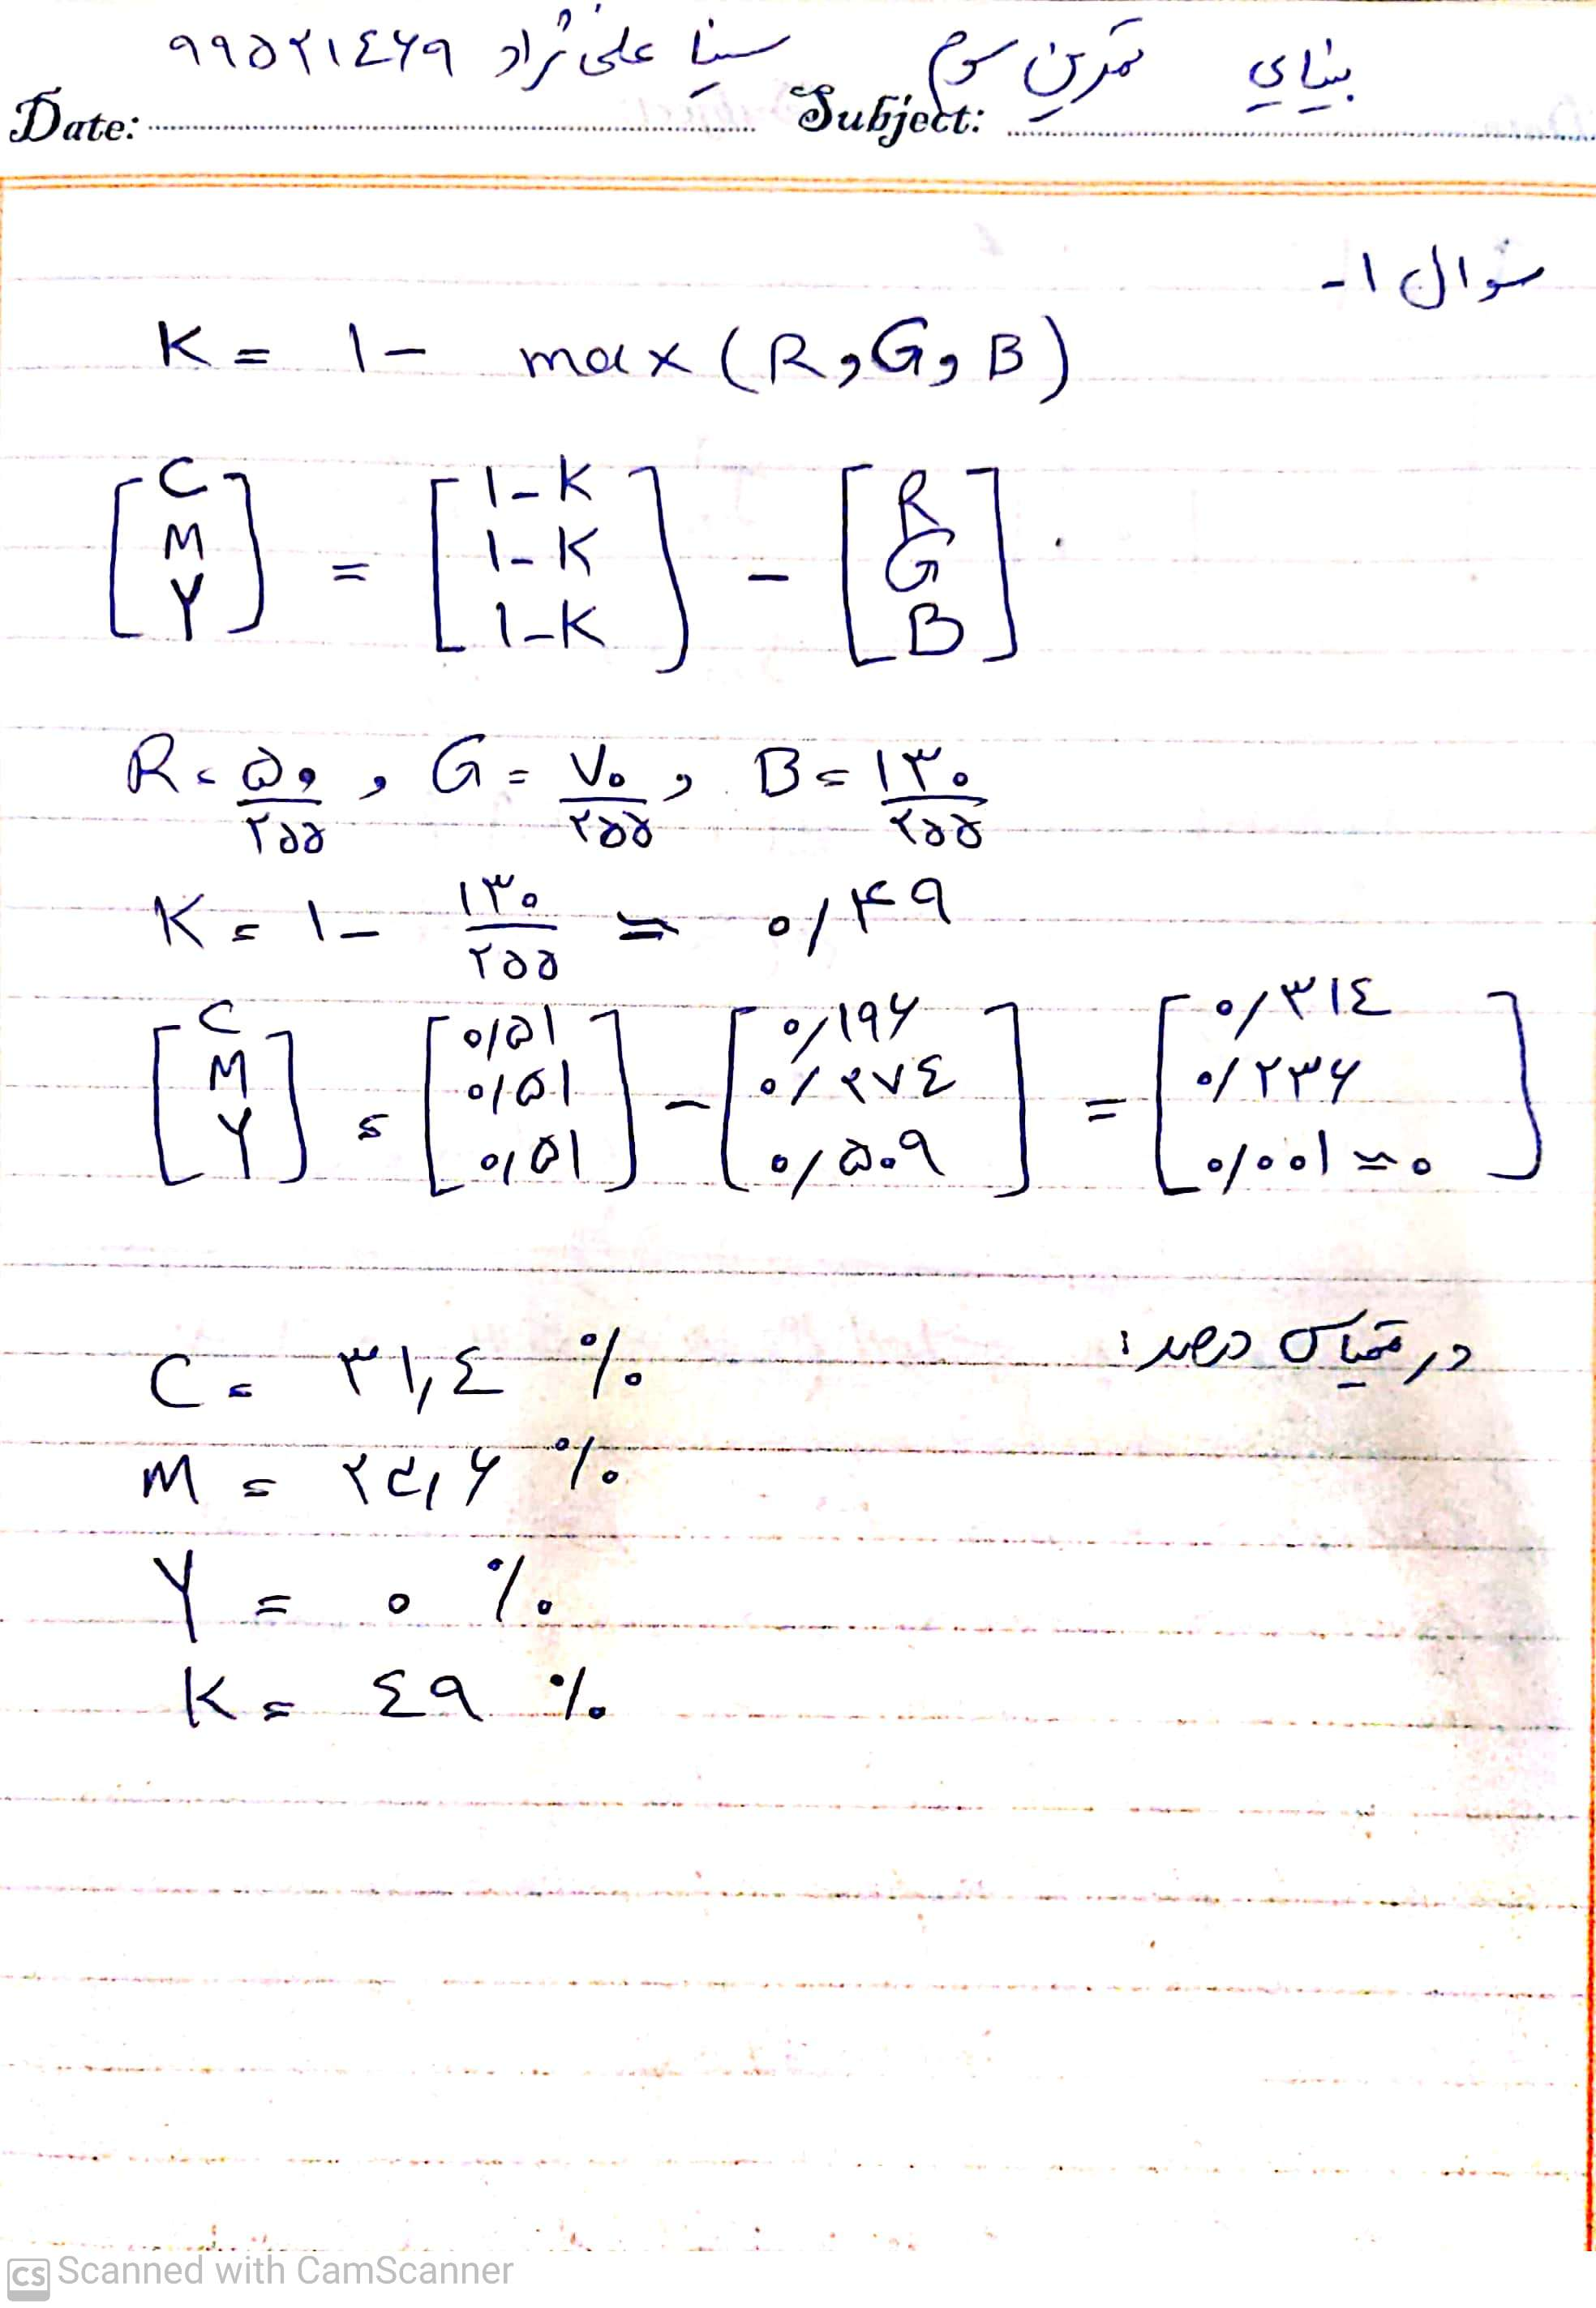 بینایی تمرین سوم سینا علی نژاد ۹۹۵۲۱٤۶۹
Date: Subject:
سوال ۱-
K = 1 - max (R, G, B)
[C M Y] = [1-K 1-K 1-K] - [R G B]
R = ۵۰/۲۵۵ , G = ۷۰/۲۵۵ , B = ۱۳۰/۲۵۵
K = ۱ - ۱۳۰/۲۵۵ = ۰/۴۹
[C M Y] = [۰/۵۱ ۰/۵۱ ۰/۵۱] - [۰/۱۹۶ ۰/۲۷٤ ۰/۵۰۹] = [۰/۳۱٤ ۰/۲۳۶ ۰/۰۰۱ ≈ ۰]
در مقیاس درصد:
C = ۳۱,٤ %
M = ۲۳,۶ %
Y = ۰ %
K = ٤۹ %
CS Scanned with CamScanner